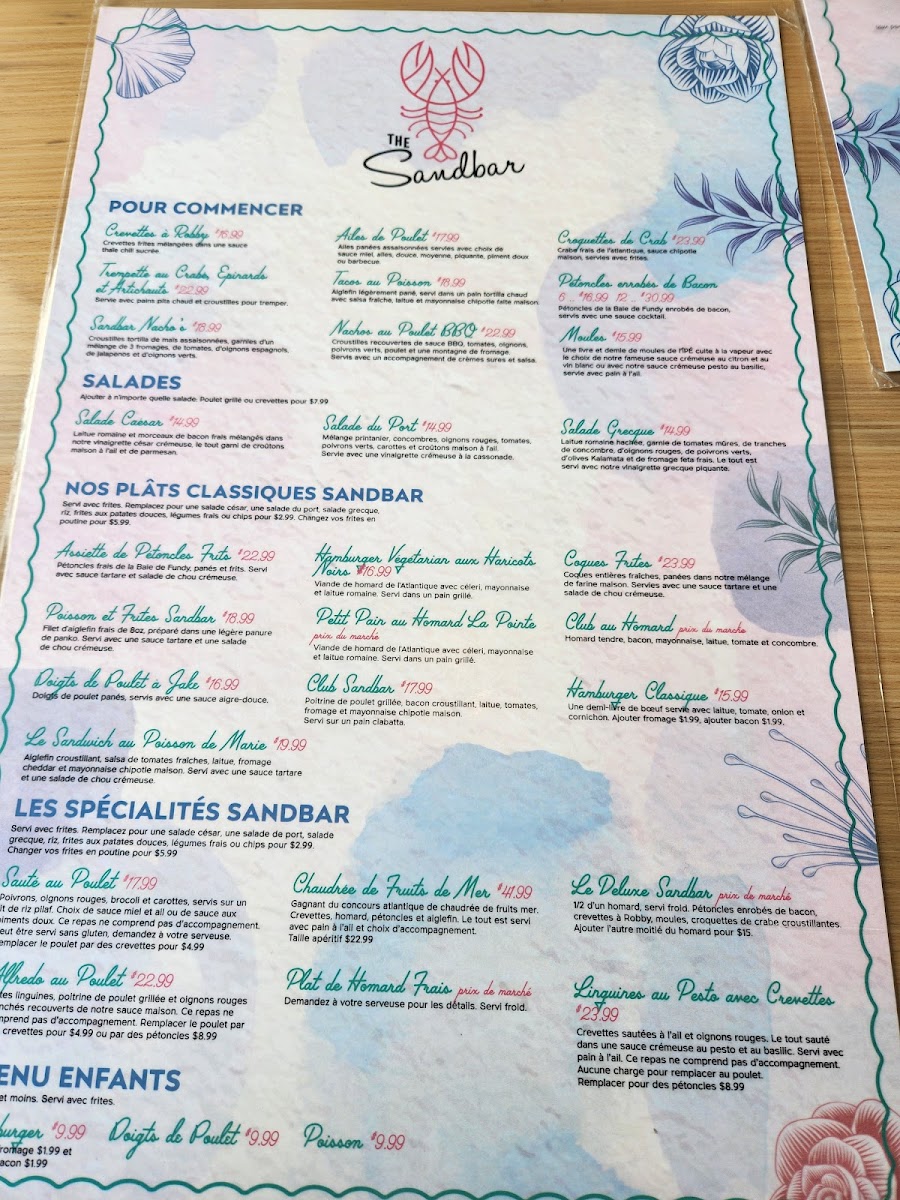 THE
Sandbar
POUR COMMENCER
Crevettes à Robby $16.99
Crevettes frites mélangées dans une sauce
thaïe chili sucrée.
Trempette au Crabe, Épinards
et Artichauts $22.99
Servie avec pains pita chaud et croustilles pour tremper.
Sandbar Nacho's $18.99
Croustilles tortilla de maïs assaisonnées, garnies d'un
mélange de 3 fromages, de tomates, d'oignons espagnols,
de jalapenos et d'oignons verts.
Ailes de Poulet $17.99
Ailes panées assaisonnées servies avec choix de
sauce miel, ailes, douce, moyenne, piquante, piment doux
ou barbecue.
Tacos au Poisson $18.99
Aiglefin légèrement pané, servi dans un pain tortilla chaud
avec salsa fraîche, laitue et mayonnaise chipotle faite maison.
Nachos au Poulet BBQ $22.99
Croustilles recouvertes de sauce BBQ, tomates, oignons,
poivrons verts, poulet et une montagne de fromage.
Servis avec un accompagnement de crèmes sures et salsa.
Croquettes de Crab $23.99
Crabe frais de l'atlantique, sauce chipotle
maison, servies avec frites.
Pétoncles enrobés de Bacon
6 .. $16.99 12 .. $30.99
Pétoncles de la Baie de Fundy enrobés de bacon,
servis avec une sauce cocktail.
Moules $15.99
Une livre et demie de moules de l'IPÉ cuite à la vapeur avec
le choix de notre fameuse sauce crémeuse au citron et au
vin blanc ou avec notre sauce crémeuse pesto au basilic,
servie avec pain à l'ail.
SALADES
Ajouter à n'importe quelle salade: Poulet grillé ou crevettes pour $7.99
Salade Caesar $14.99
Laitue romaine et morceaux de bacon frais mélangés dans
notre vinaigrette césar crémeuse, le tout garni de croûtons
maison à l'ail et de parmesan.
Salade du Port $14.99
Mélange printanier, concombres, oignons rouges, tomates,
poivrons verts, carottes et croûtons maison à l'ail.
Servie avec une vinaigrette crémeuse à la cassonade.
Salade Grecque $14.99
Laitue romaine hachée, garnie de tomates mûres, de tranches
de concombre, d'oignons rouges, de poivrons verts,
d'olives Kalamata et de fromage feta frais. Le tout est
servi avec notre vinaigrette grecque piquante.
NOS PLÂTS CLASSIQUES SANDBAR
Servi avec frites. Remplacez pour une salade césar, une salade du port, salade grecque,
riz, frites aux patates douces, légumes frais ou chips pour $2.99. Changez vos frites en
poutine pour $5.99.
Assiette de Pétoncles Frits $22.99
Pétoncles frais de la Baie de Fundy, panés et frits. Servi
avec sauce tartare et salade de chou crémeuse.
Hamburger Végétarian aux Haricots
Noirs $16.99
Viande de homard de l'Atlantique avec céleri, mayonnaise
et laitue romaine. Servi dans un pain grillé.
Coques Frites $23.99
Coques entières fraîches, panées dans notre mélange
de farine maison. Servies avec une sauce tartare et une
salade de chou crémeuse.
Poisson et Frites Sandbar $18.99
Filet d'aiglefin frais de 8oz, préparé dans une légère panure
de panko. Servi avec une sauce tartare et une salade
de chou crémeuse.
Petit Pain au Homard La Pointe
prix du marché
Viande de homard de l'Atlantique avec céleri, mayonnaise
et laitue romaine. Servi dans un pain grillé.
Club au Homard prix du marché
Homard tendre, bacon, mayonnaise, laitue, tomate et concombre.
Doigts de Poulet à Jake $16.99
Doigts de poulet panés, servis avec une sauce aigre-douce.
Club Sandbar $17.99
Poitrine de poulet grillée, bacon croustillant, laitue, tomates,
fromage et mayonnaise chipotle maison.
Servi sur un pain ciabatta.
Hamburger Classique $15.99
Une demi-livre de bœuf servie avec laitue, tomate, onion et
cornichon. Ajouter fromage $1.99, ajouter bacon $1.99.
Le Sandwich au Poisson de Marie $19.99
Aiglefin croustillant, salsa de tomates fraîches, laitue, fromage
cheddar et mayonnaise chipotle maison. Servi avec une sauce tartare
et une salade de chou crémeuse.
LES SPÉCIALITÉS SANDBAR
Servi avec frites. Remplacez pour une salade césar, une salade de port, salade
grecque, riz, frites aux patates douces, légumes frais ou chips pour $2.99.
Changer vos frites en poutine pour $5.99
Sauté au Poulet $17.99
Poivrons, oignons rouges, brocoli et carottes, servis sur un
lit de riz pilaf. Choix de sauce miel et ail ou de sauce aux
piments doux. Ce repas ne comprend pas d'accompagnement.
eut être servi sans gluten, demandez à votre serveuse.
emplacer le poulet par des crevettes pour $4.99
Chaudrée de Fruits de Mer $41.99
Gagnant du concours atlantique de chaudrée de fruits mer.
Crevettes, homard, pétoncles et aiglefin. Le tout est servi
avec pain à l'ail et choix d'accompagnement.
Taille apéritif $22.99
Le Deluxe Sandbar prix de marché
1/2 d'un homard, servi froid. Pétoncles enrobés de bacon,
crevettes à Robby, moules, croquettes de crabe croustillantes.
Ajouter l'autre moitié du homard pour $15.
Alfredo au Poulet $22.99
tes linguines, poitrine de poulet grillée et oignons rouges
nchés recouverts de notre sauce maison. Ce repas ne
mprend pas d'accompagnement. Remplacer le poulet par
crevettes pour $4.99 ou par des pétoncles $8.99
Plat de Homard Frais prix de marché
Demandez à votre serveuse pour les détails. Servi froid.
Linguines au Pesto avec Crevettes
$23.99
Crevettes sautées à l'ail et oignons rouges. Le tout sauté
dans une sauce crémeuse au pesto et au basilic. Servi avec
pain à l'ail. Ce repas ne comprend pas d'accompagnement.
Aucune charge pour remplacer au poulet.
Remplacer pour des pétoncles $8.99
ENU ENFANTS
et moins. Servi avec frites.
burger $9.99
fromage $1.99 et
acon $1.99
Doigts de Poulet $9.99
Poisson $9.99